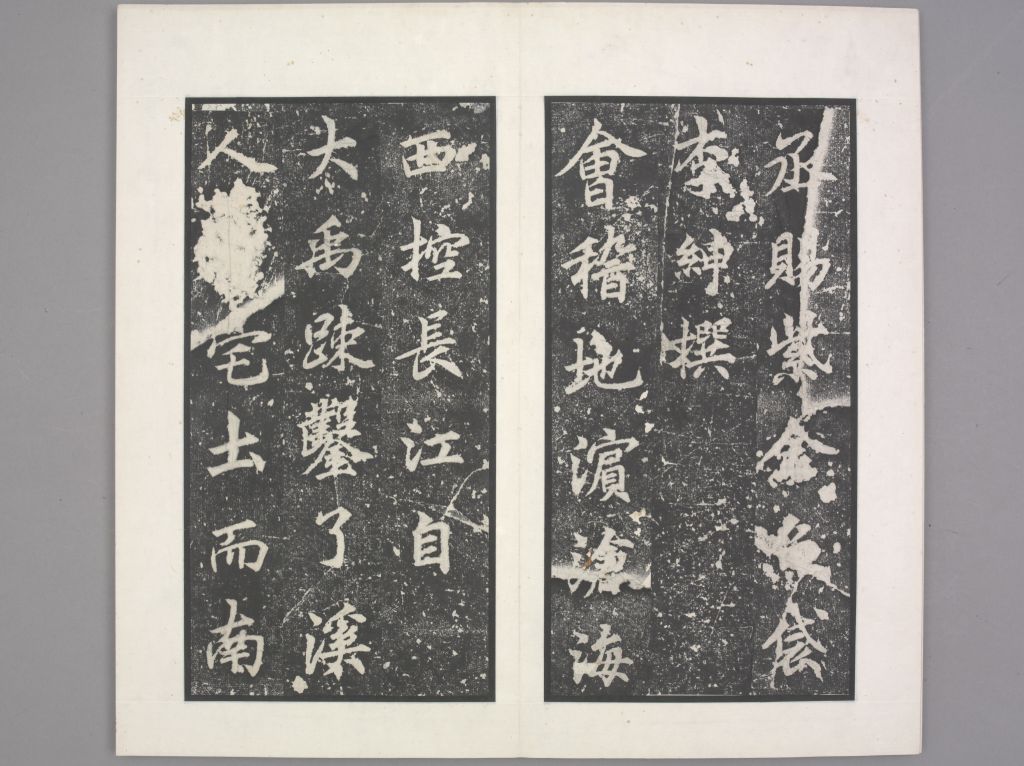 丞賜紫金魚袋
李紳撰
會稽地濱滄海
西控長江自
大禹踈鑿了溪
人宅土而南